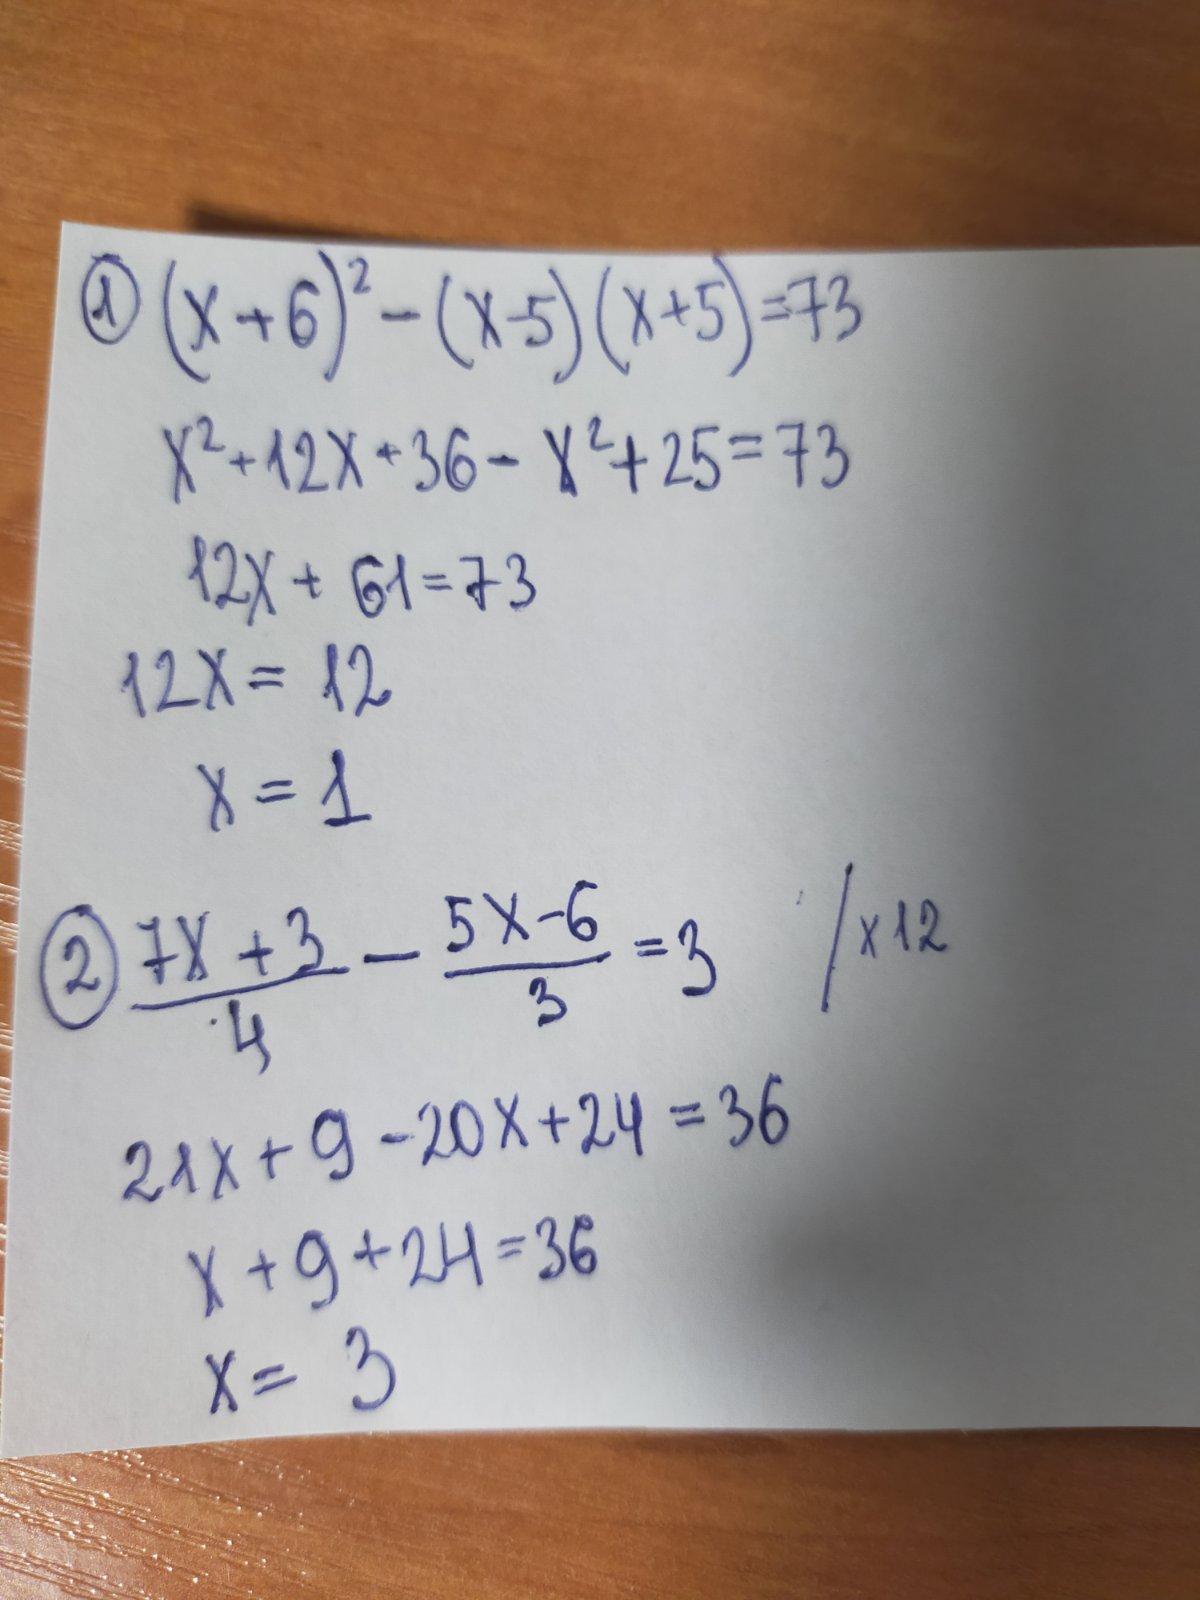 ① (x+6)² - (x-5)(x+5)=73
x²+12x+36- x²+25=73
12x+ 61=73
12x= 12
x = 1
② (7x+3)/4 - (5x-6)/3 =3 / x12
21x+9-20x+24=36
x+9+24=36
x= 3